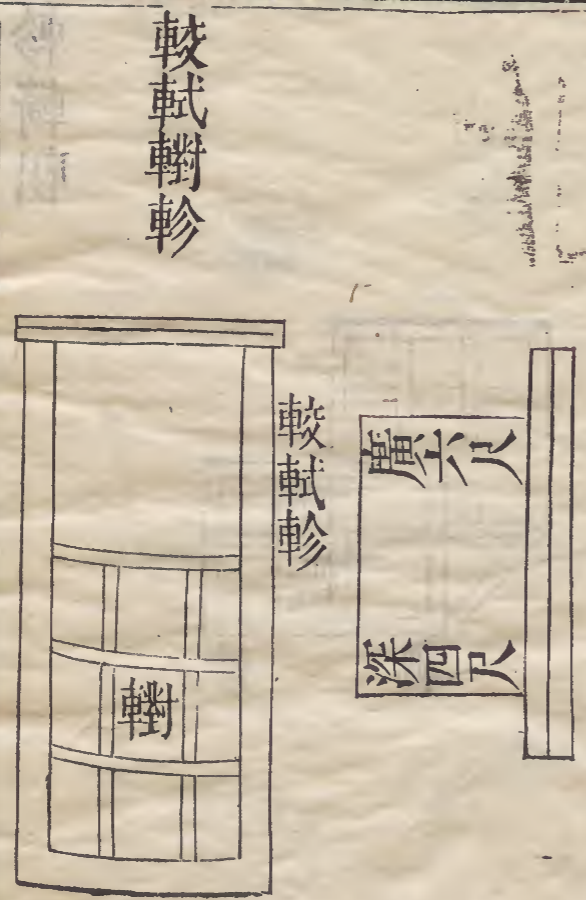 較軾轛軫
廣六尺
深四尺
較軾軫
轛